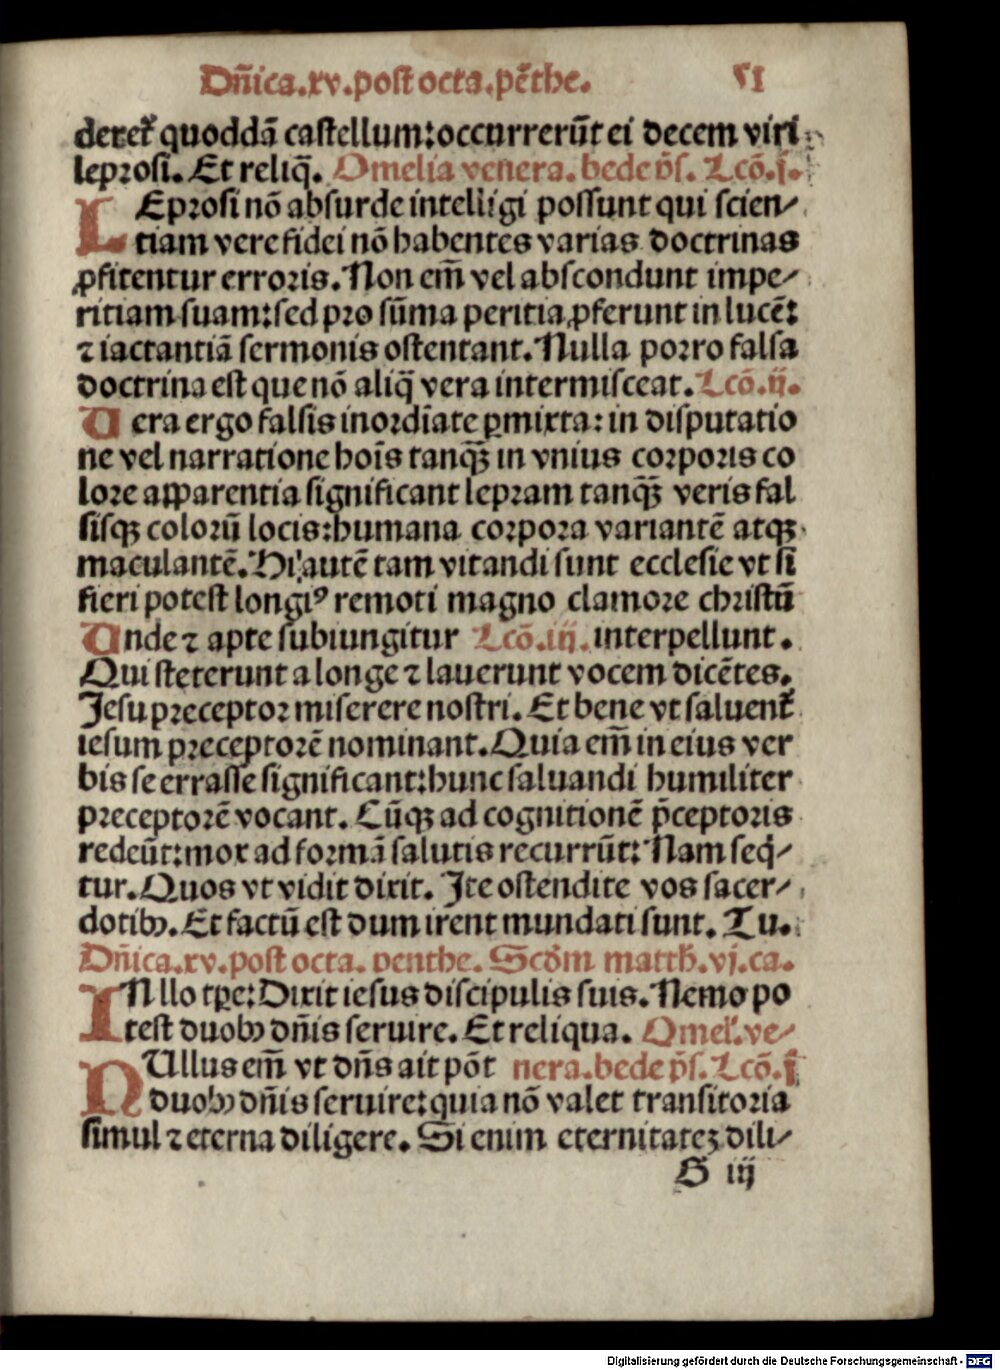 Dn̄ica.xv.post octa.pēthe. vI
deret᷑ quoddā castellum:occurrerūt ei decem viri
leprosi. Et reliq̄. Omelia venera. bede p̄s. Lcō.j.
LEprosi nō absurde intelligi possunt qui scien⸗
tiam vere fidei nō habentes varias doctrinas
ꝓfitentur erroris. Non em̄ vel abscondunt impe⸗
ritiam suam:sed pro sūma peritia ꝓferunt in lucē:
⁊ iactantiā sermonis ostentant. Nulla porro falsa
doctrina est que nō aliq̄ vera intermisceat. Lcō.ij.
Uera ergo falsis inordīate ꝑmixta: in disputatio
ne vel narratione hoīs tanqꝫ in vnius corporis co
lore apparentia significant lepram tanqꝫ veris fal
sisqꝫ colorū locis:humana corpora variantē atqꝫ
maculantē. Hi autē tam vitandi sunt ecclesie vt si
fieri potest longiꝰ remoti magno clamore christū
Unde ⁊ apte subiungitur Lcō.iij. interpellunt.
Qui steterunt a longe ⁊ lauerunt vocem dicētes.
Jesu preceptor miserere nostri. Et bene vt saluent᷑
iesum preceptorē nominant. Quia em̄ in eius ver
bis se errasse significant:hunc saluandi humiliter
preceptorē vocant. Cūqꝫ ad cognitionē p̄ceptoris
redeūt:mox ad formā salutis recurrūt: Nam seq̄⸗
tur. Quos vt vidit dixit. Ite ostendite vos sacer⸗
dotibꝫ. Et factū est dum irent mundati sunt. Tu.
Dn̄ica.xv.post octa. penthe. Scḋm matth̄.vj.ca.
IN llo tꝑe: Dixit iesus discipulis suis. Nemo po
test duobꝫ dn̄is seruire. Et reliqua. Omel'.ve⸗
NUllus em̄ vt dn̄s ait pōt nera.bede p̄s. Lcō.j
duobꝫ dn̄is seruire:quia nō valet transitoria
simul ⁊ eterna diligere. Si enim eternitateꝫ dili⸗
G iij
Digitalisierung gefördert durch die Deutsche Forschungsgemeinschaft - DFG